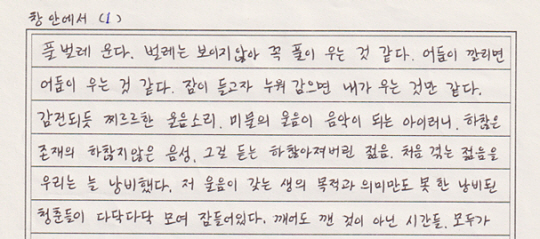 창 안에서 (1)
풀벌레 운다. 벌레는 보이지않아 꼭 풀이 우는 것 같다. 어둠이 깔리면
어둠이 우는 것 같다. 잠이 들고자 누워 감으면 내가 우는 것만 같다.
감전되듯 찌르르한 울음소리. 미물의 울음이 음악이 되는 아이러니. 하찮은
존재의 하찮지않은 음성. 그걸 듣는 하찮아져버린 젊음. 처음 겪는 젊음을
우리는 늘 낭비했다. 저 울음이 갖는 생의 목적과 의미만도 못 한 낭비된
청춘들이 다닥다닥 모여 잠들어있다. 깨어도 깬 것이 아닌 시간들. 모두가